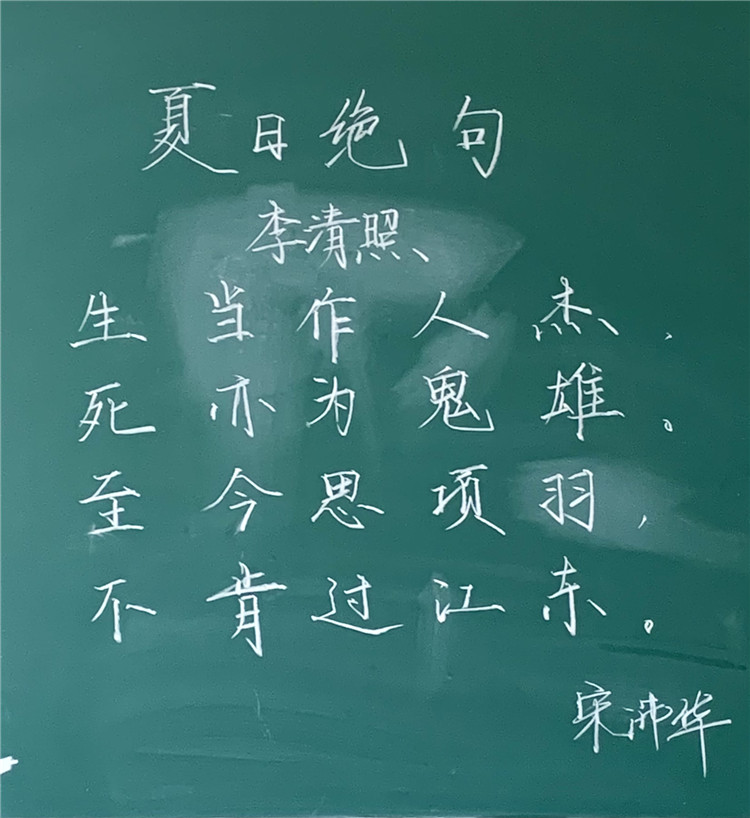 夏日绝句
李清照
生当作人杰，
死亦为鬼雄。
至今思项羽，
不肯过江东。
宋沛华